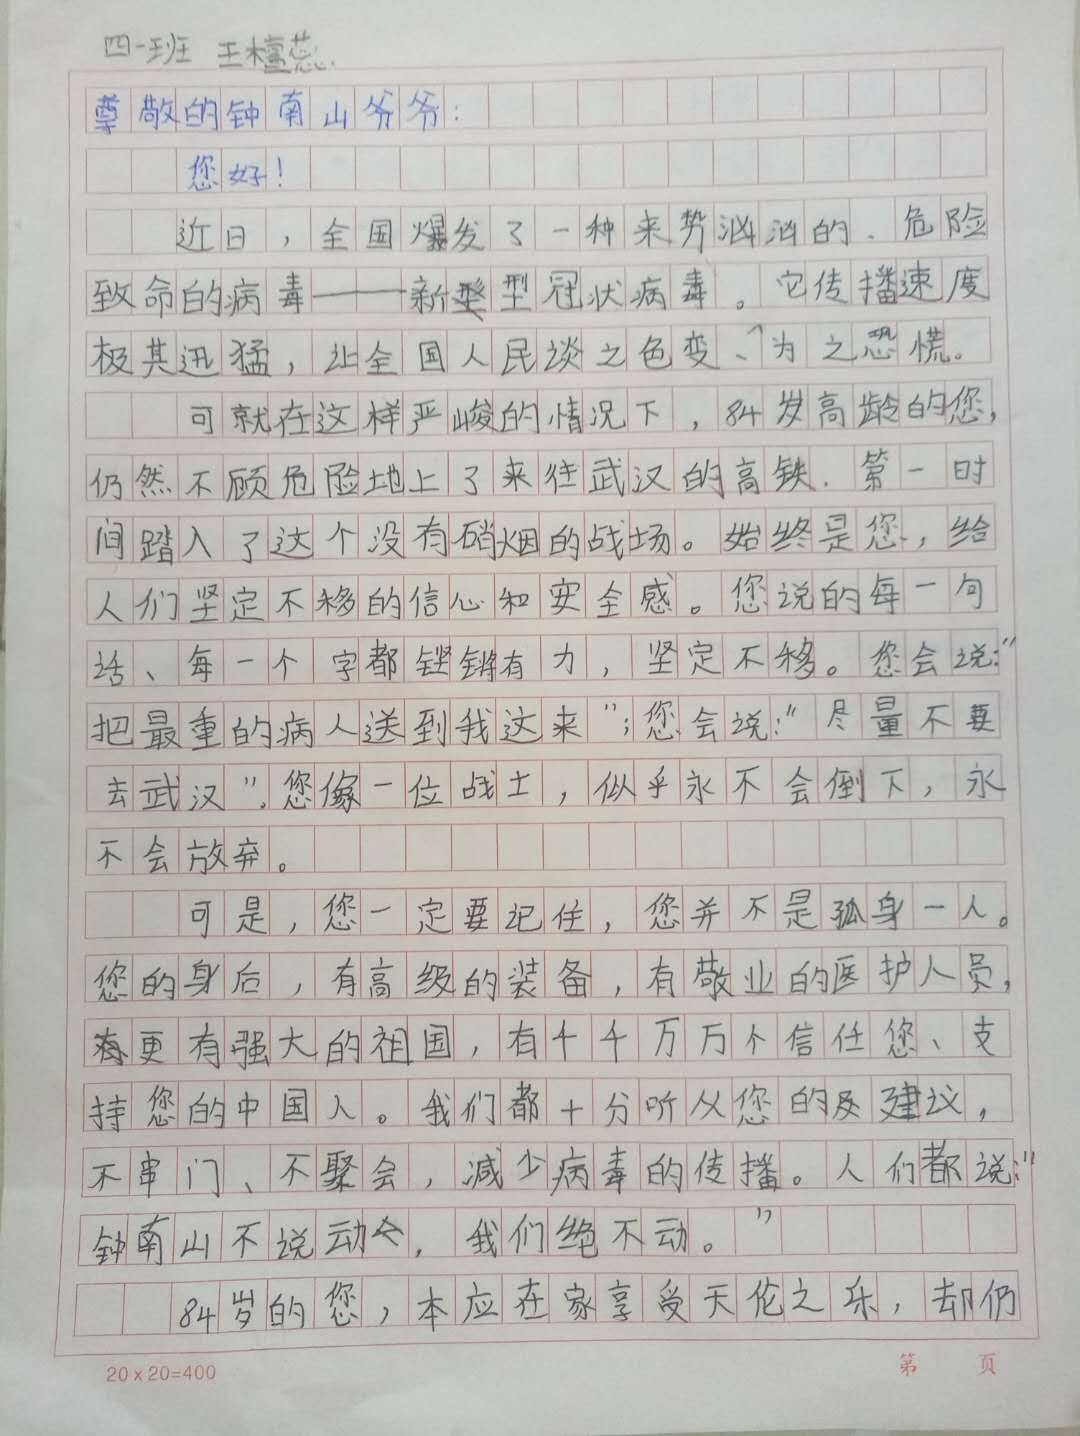 四一班 王檀蕊
尊敬的钟南山爷爷:
您好!
近日,全国爆发了一种来势汹汹的、危险
致命的病毒——新型冠状病毒。它传播速度
极其迅猛,让全国人民谈之色变、为之恐慌。
可就在这样严峻的情况下,84岁高龄的您,
仍然不顾危险地上了来往武汉的高铁.第一时
间踏入了这个没有硝烟的战场。始终是您,给
人们坚定不移的信心和安全感。您说的每一句
话、每一个字都铿锵有力,坚定不移。您会说:"
把最重的病人送到我这来";您会说:"尽量不要
去武汉".您像一位战士,似乎永不会倒下,永
不会放弃。
可是,您一定要记住,您并不是孤身一人。
您的身后,有高级的装备,有敬业的医护人员,
更有强大的祖国,有千千万万个信任您、支
持您的中国人。我们都十分听从您的建议,
不串门、不聚会,减少病毒的传播。人们都说:"
钟南山不说动,我们绝不动。"
84岁的您,本应在家享受天伦之乐,却仍
20×20=400
第 页